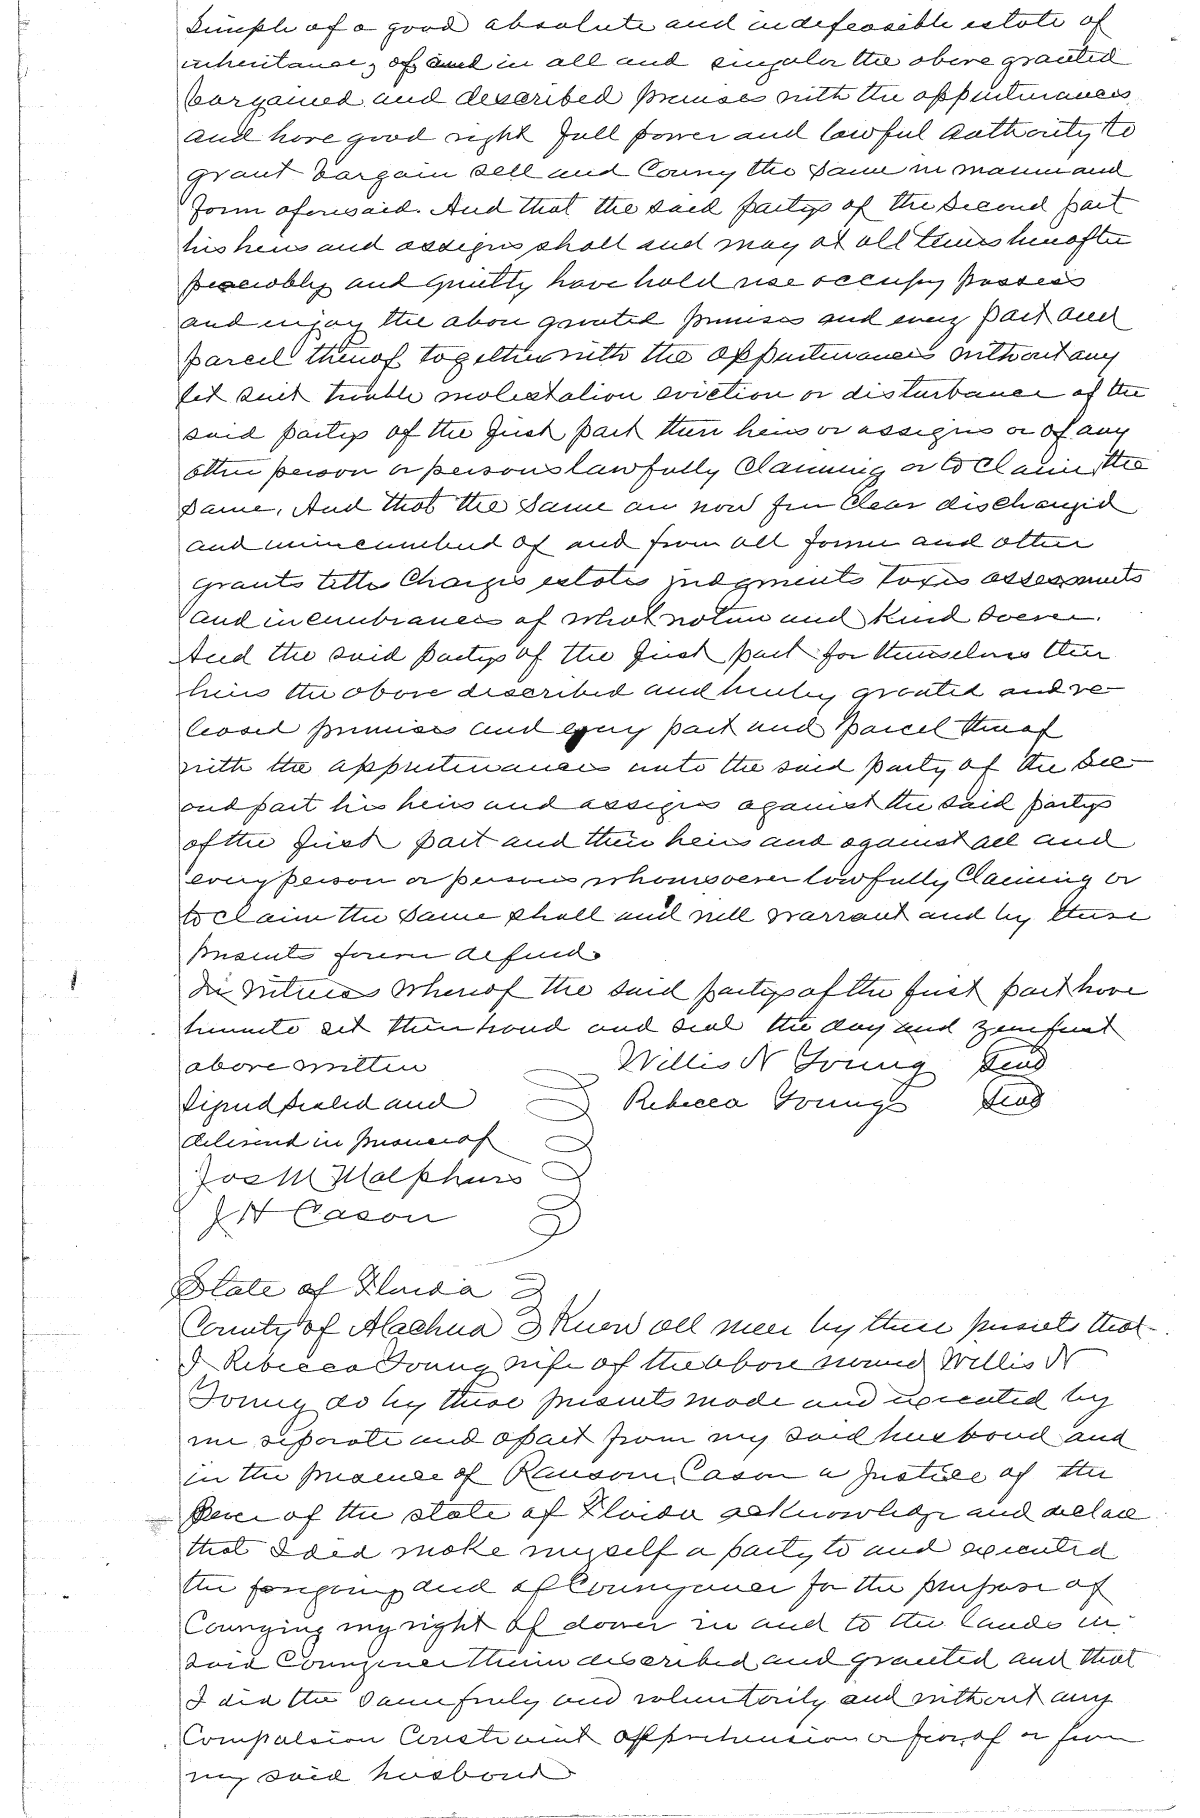 Simple of a good absolute and indefeasible estate of
inheritance, of and in all and singular the above granted
bargained and described premises with the appurtenances
and have good right full power and lawful authority to
grant bargain sell and Convey the Same in manner and
form aforesaid. And that the said partys of the Second part
his heirs and assigns shall and may at all times hereafter
peaceably and quietly have hold use occupy possess
and enjoy the above granted premises and every part and
parcel thereof together with the appurtenances without any
let suit trouble molestation eviction or disturbance of the
said partys of the first part their heirs or assigns or of any
other person or persons lawfully Claiming or to Claim the
Same, And that the Same are now free Clear discharged
and unincumbered of and from all former and other
grants title Charges estates judgments taxes assessments
and incumbrances of what nature and kind soever.
And the said partys of the first part for themselves their
heirs the above described and hereby granted and re-
leased premises and every part and parcel thereof
with the appurtenances unto the said party of the Sec-
ond part his heirs and assigns against the said partys
of the first part and their heirs and against all and
every person or persons whomsoever lawfully Claiming or
to claim the Same shall and will warrant and by these
presents forever defend.
In Witness Whereof the said partys of the first part have
hereunto set their hand and seal the day and year first
above written Willis N Young Seal
Signed Sealed and Rebecca Young Seal
delivered in presence of
Jos M Malphurs
J H Cason
State of Florida
County of Alachua Know all men by these presents that
I Rebecca Young wife of the above named Willis N
Young do by these presents made and executed by
me separate and apart from my said husband and
in the presence of Ransom Cason a Justice of the
Peace of the state of Florida acknowledge and declare
that I did make myself a party to and executed
the foregoing deed of Conveyance for the purpose of
Conveying my right of dower in and to the lands in
said Conveyance therein described and granted and that
I did the Same freely and voluntarily and without any
Compulsion Constraint apprehension or fear of or from
my said husband